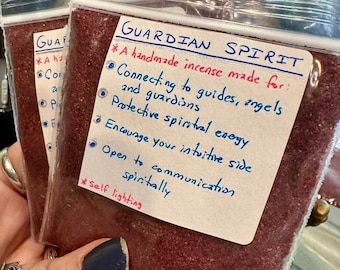 GUARDIAN SPIRIT
* A handmade incense made for:
• Connecting to guides, angels
and guardians
• Protective spiritual energy
• Encourage your intuitive side
• Open to communication
spiritually
* self lighting
GUA
* A hand
• Co